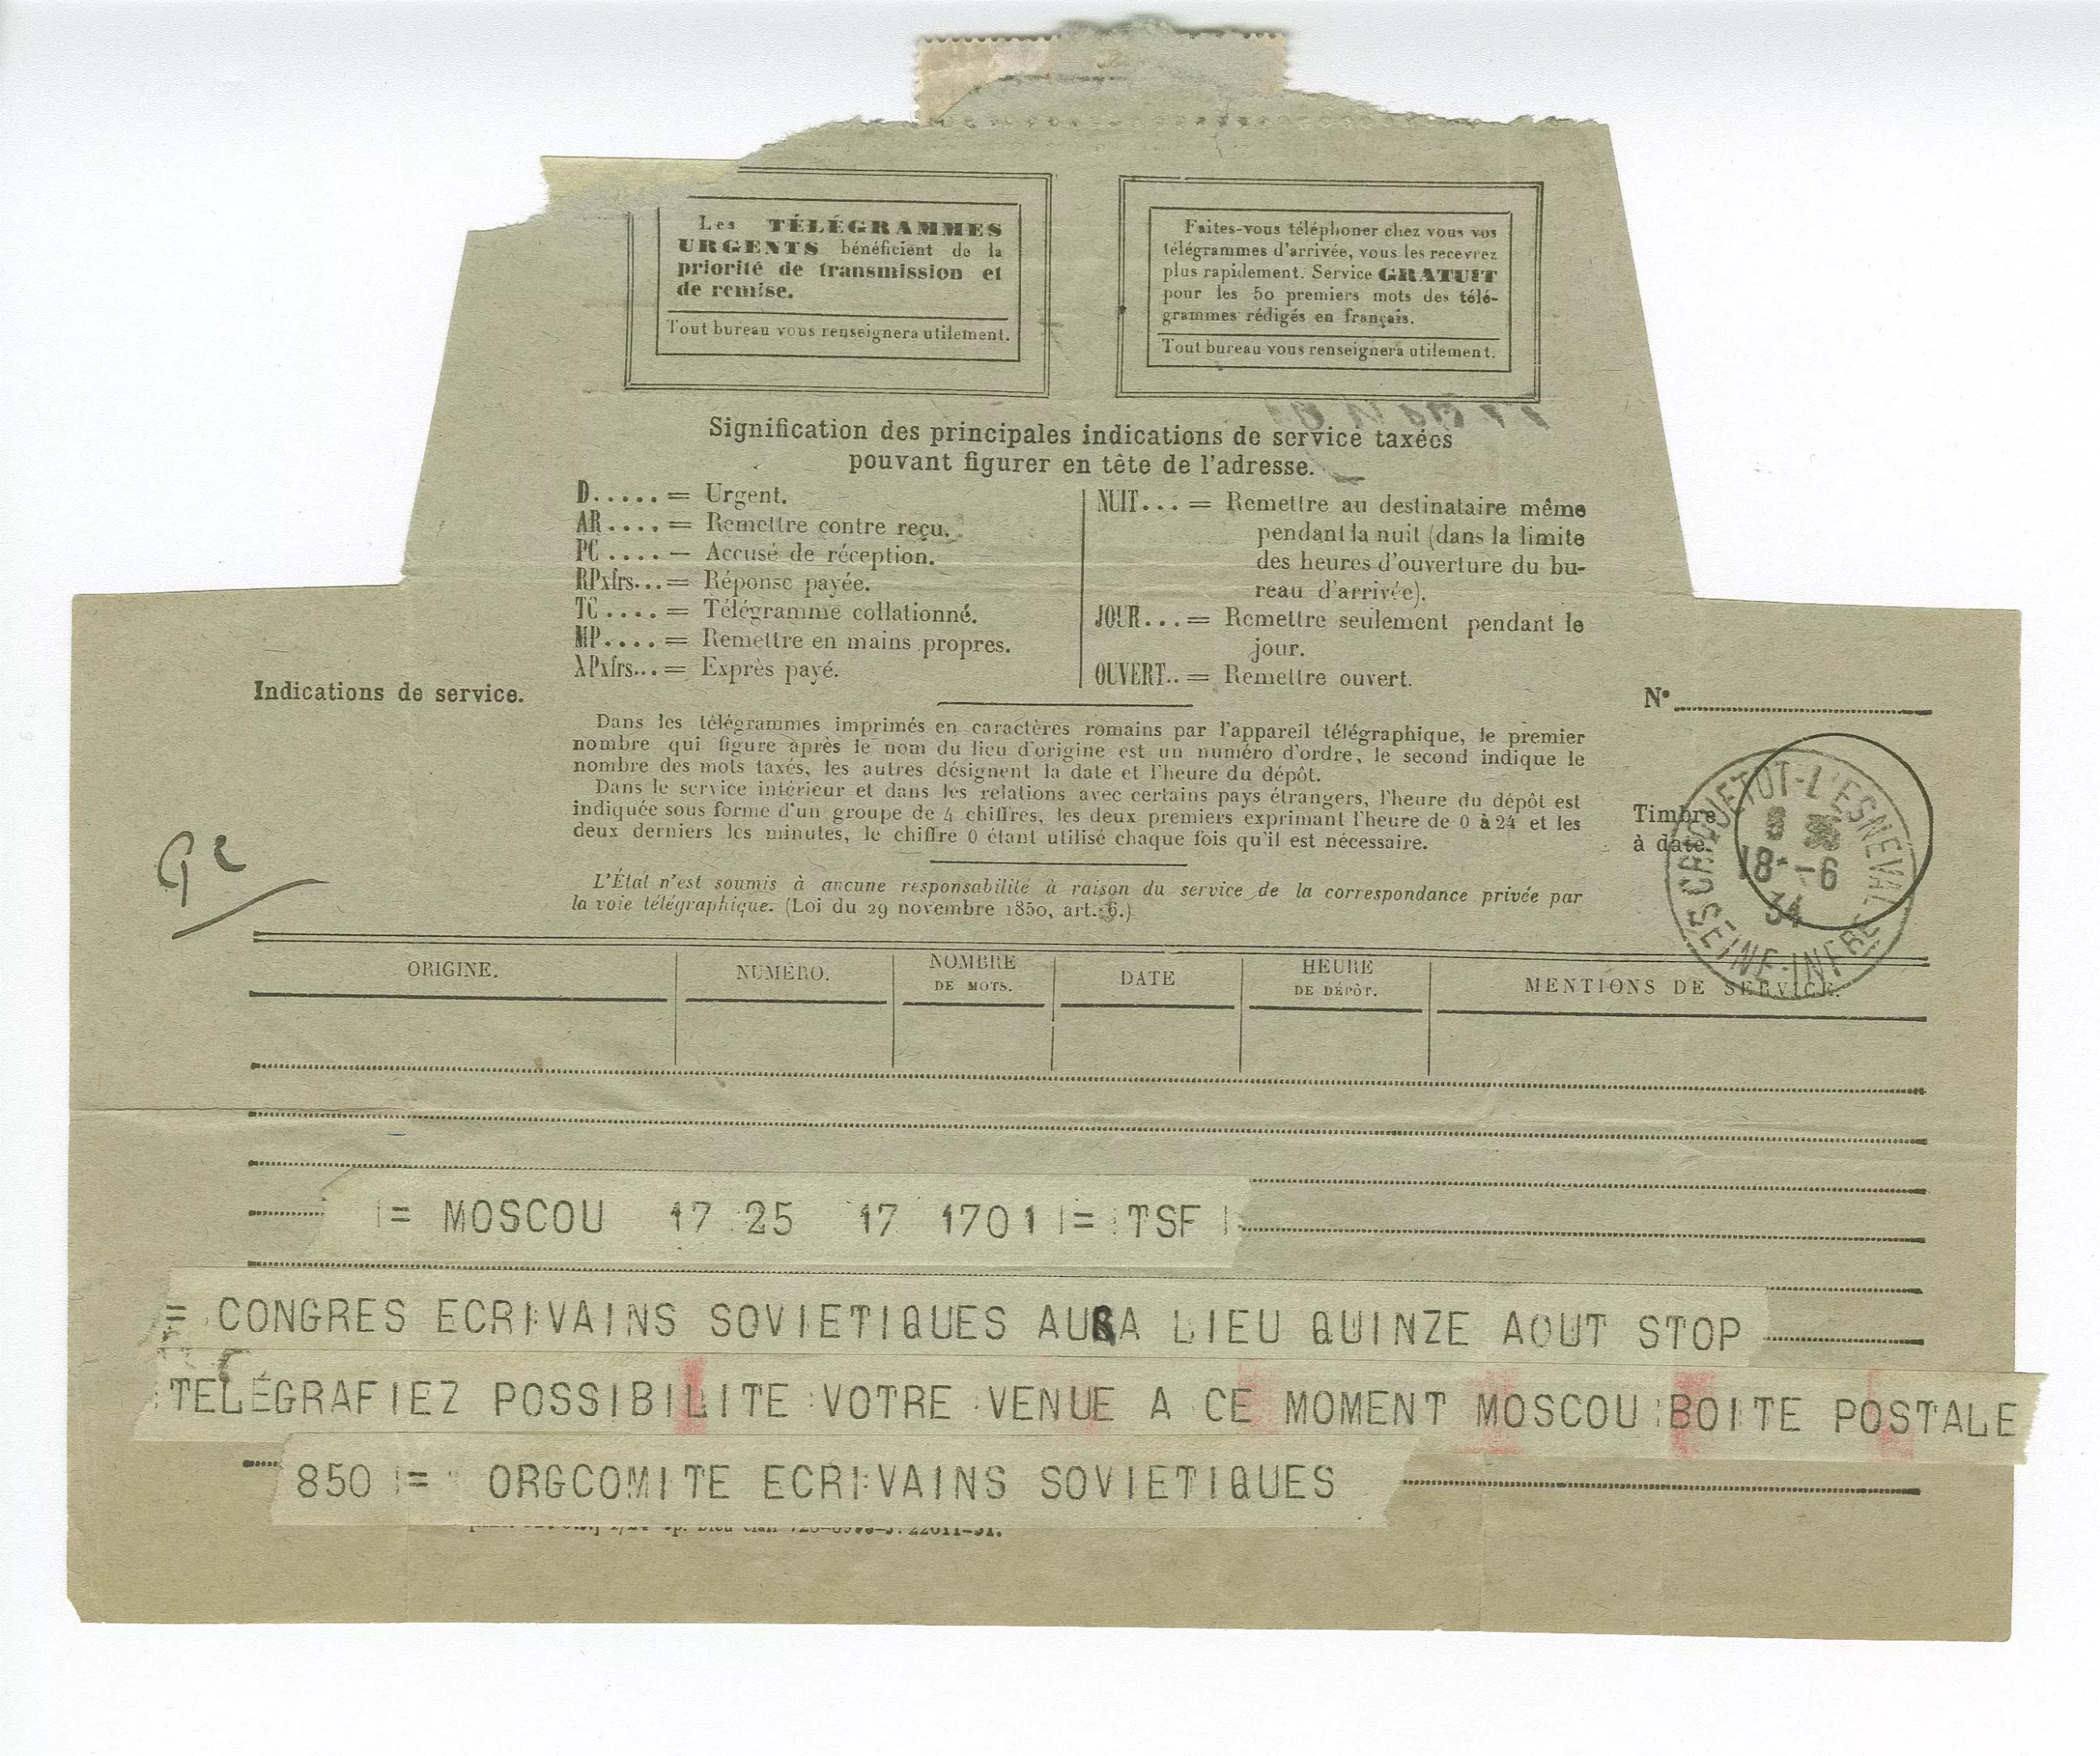 Les TÉLÉGRAMMES
URGENTS bénéficient de la
priorité de transmission et
de remise.
Tout bureau vous renseignera utilement.
Faites-vous téléphoner chez vous vos
télégrammes d'arrivée, vous les recevrez
plus rapidement. Service GRATUIT
pour les 50 premiers mots des télé-
grammes rédigés en français.
Tout bureau vous renseignera utilement.
Signification des principales indications de service taxées
pouvant figurer en tête de l'adresse.
D..... = Urgent.
AR.... = Remettre contre reçu.
PC .... — Accusé de réception.
RPxfrs... = Réponse payée.
TC .... = Télégramme collationné.
MP.... = Remettre en mains propres.
XPxfrs... = Exprès payé.
NUIT... = Remettre au destinataire même
pendant la nuit (dans la limite
des heures d'ouverture du bu-
reau d'arrivée).
JOUR... = Remettre seulement pendant le
jour.
OUVERT.. = Remettre ouvert.
Indications de service.
N°
Dans les télégrammes imprimés en caractères romains par l'appareil télégraphique, le premier
nombre qui figure après le nom du lieu d'origine est un numéro d'ordre, le second indique le
nombre des mots taxés, les autres désignent la date et l'heure du dépôt.
Dans le service intérieur et dans les relations avec certains pays étrangers, l'heure du dépôt est
indiquée sous forme d'un groupe de 4 chiffres, les deux premiers exprimant l'heure de 0 à 24 et les
deux derniers les minutes, le chiffre 0 étant utilisé chaque fois qu'il est nécessaire.
Timbre
à date.
CRIQUETOT-L'ESNEVAL
8
18 -6
34
SEINE-INFRE
L'État n'est soumis à aucune responsabilité à raison du service de la correspondance privée par
la voie télégraphique. (Loi du 29 novembre 1850, art. 6.)
ORIGINE.
NUMÉRO.
NOMBRE
DE MOTS.
DATE
HEURE
DE DÉPÔT.
MENTIONS DE SERVICE.
= MOSCOU 17 25 17 1701 = TSF
= CONGRES ECRIVAINS SOVIETIQUES AURA LIEU QUINZE AOUT STOP
TELEGRAFIEZ POSSIBILITE VOTRE VENUE A CE MOMENT MOSCOU BOITE POSTALE
850 = ORGCOMITE ECRIVAINS SOVIETIQUES